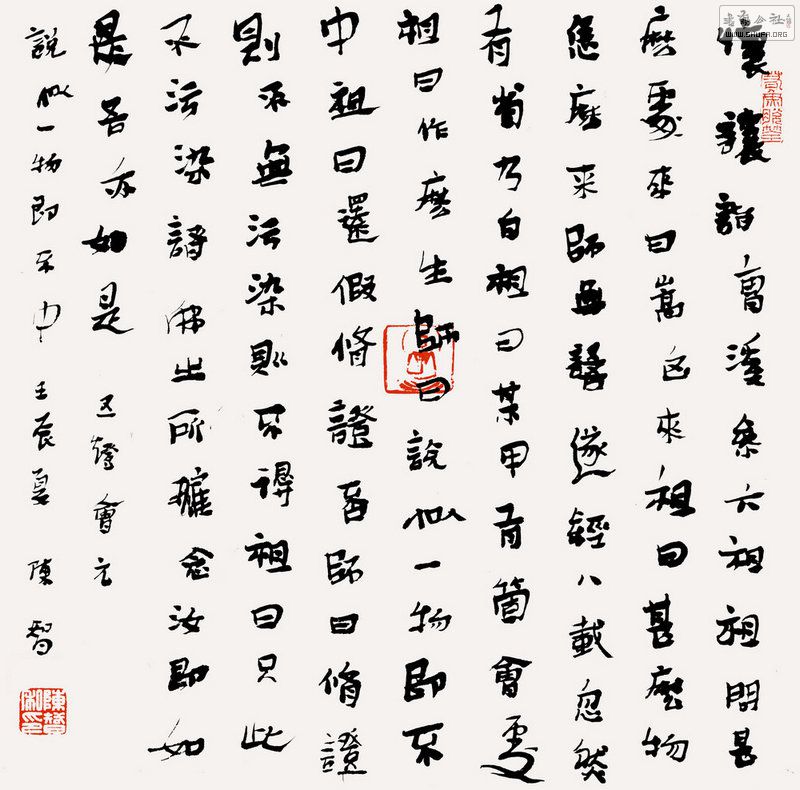 懷讓詣曹溪參六祖祖問甚
麼處來曰嵩山來祖曰甚麼物
恁麼來師無語遂經八載忽然
有省乃白祖曰某甲有箇會處
祖曰作麼生師曰說似一物即不
中祖曰還假脩證否師曰脩證
則不無污染則不得祖曰只此
不污染諸佛之所護念汝即如
是吾亦如是 五燈會元
說似一物即不中 壬辰夏 陳智
WWW.SHUFA.ORG